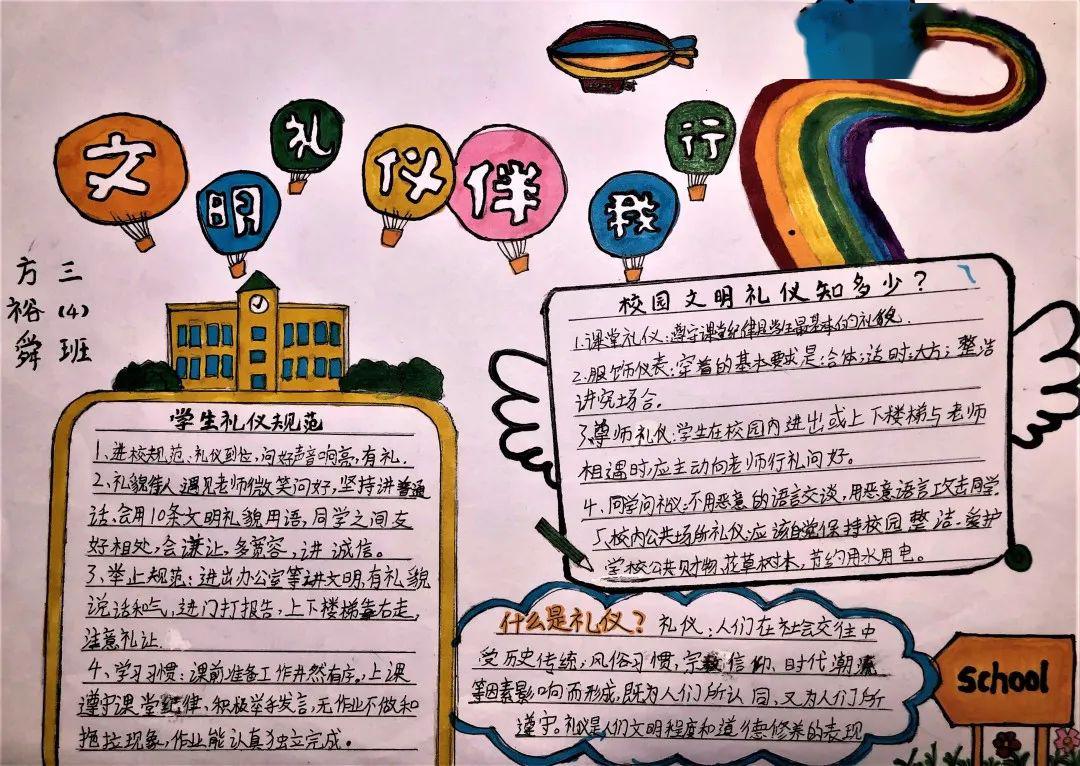 文明礼仪伴我行
三(4)班
方裕舜
学生礼仪规范
1、进校规范：礼仪到位，问好声音响亮，有礼.
2、礼貌待人 遇见老师微笑问好，坚持讲普通
话，会用10条文明礼貌用语，同学之间友
好相处，会谦让，多宽容，讲诚信。
3、举止规范：进出办公室等讲文明，有礼貌
说话和气，进门打报告，上下楼梯靠右走，
注意礼让.
4、学习习惯：课前准备工作井然有序，上课
遵守课堂纪律，积极举手发言，无作业不做和
拖拉现象，作业能认真独立完成。
校园文明礼仪知多少？
1.课堂礼仪：遵守课堂纪律是学生最基本的礼貌.
2.服饰仪表：穿着的基本要求是：合体；适时；大方；整洁
讲究场合。
3.尊师礼仪：学生在校园内进出或上下楼梯与老师
相遇时，应主动向老师行礼问好。
4、同学间礼仪：不用恶意的语言交谈，用恶意语言攻击同学.
5、校内公共场所礼仪：应该自觉保持校园整洁，爱护
学校公共财物，花草树木，节约用水用电。
什么是礼仪？ 礼仪：人们在社会交往中
受历史传统，风俗习惯，宗教信仰、时代潮流
等因素影响而形成，既为人们所认同，又为人们所
遵守。礼仪是人们文明程度和道德修养的表现
school